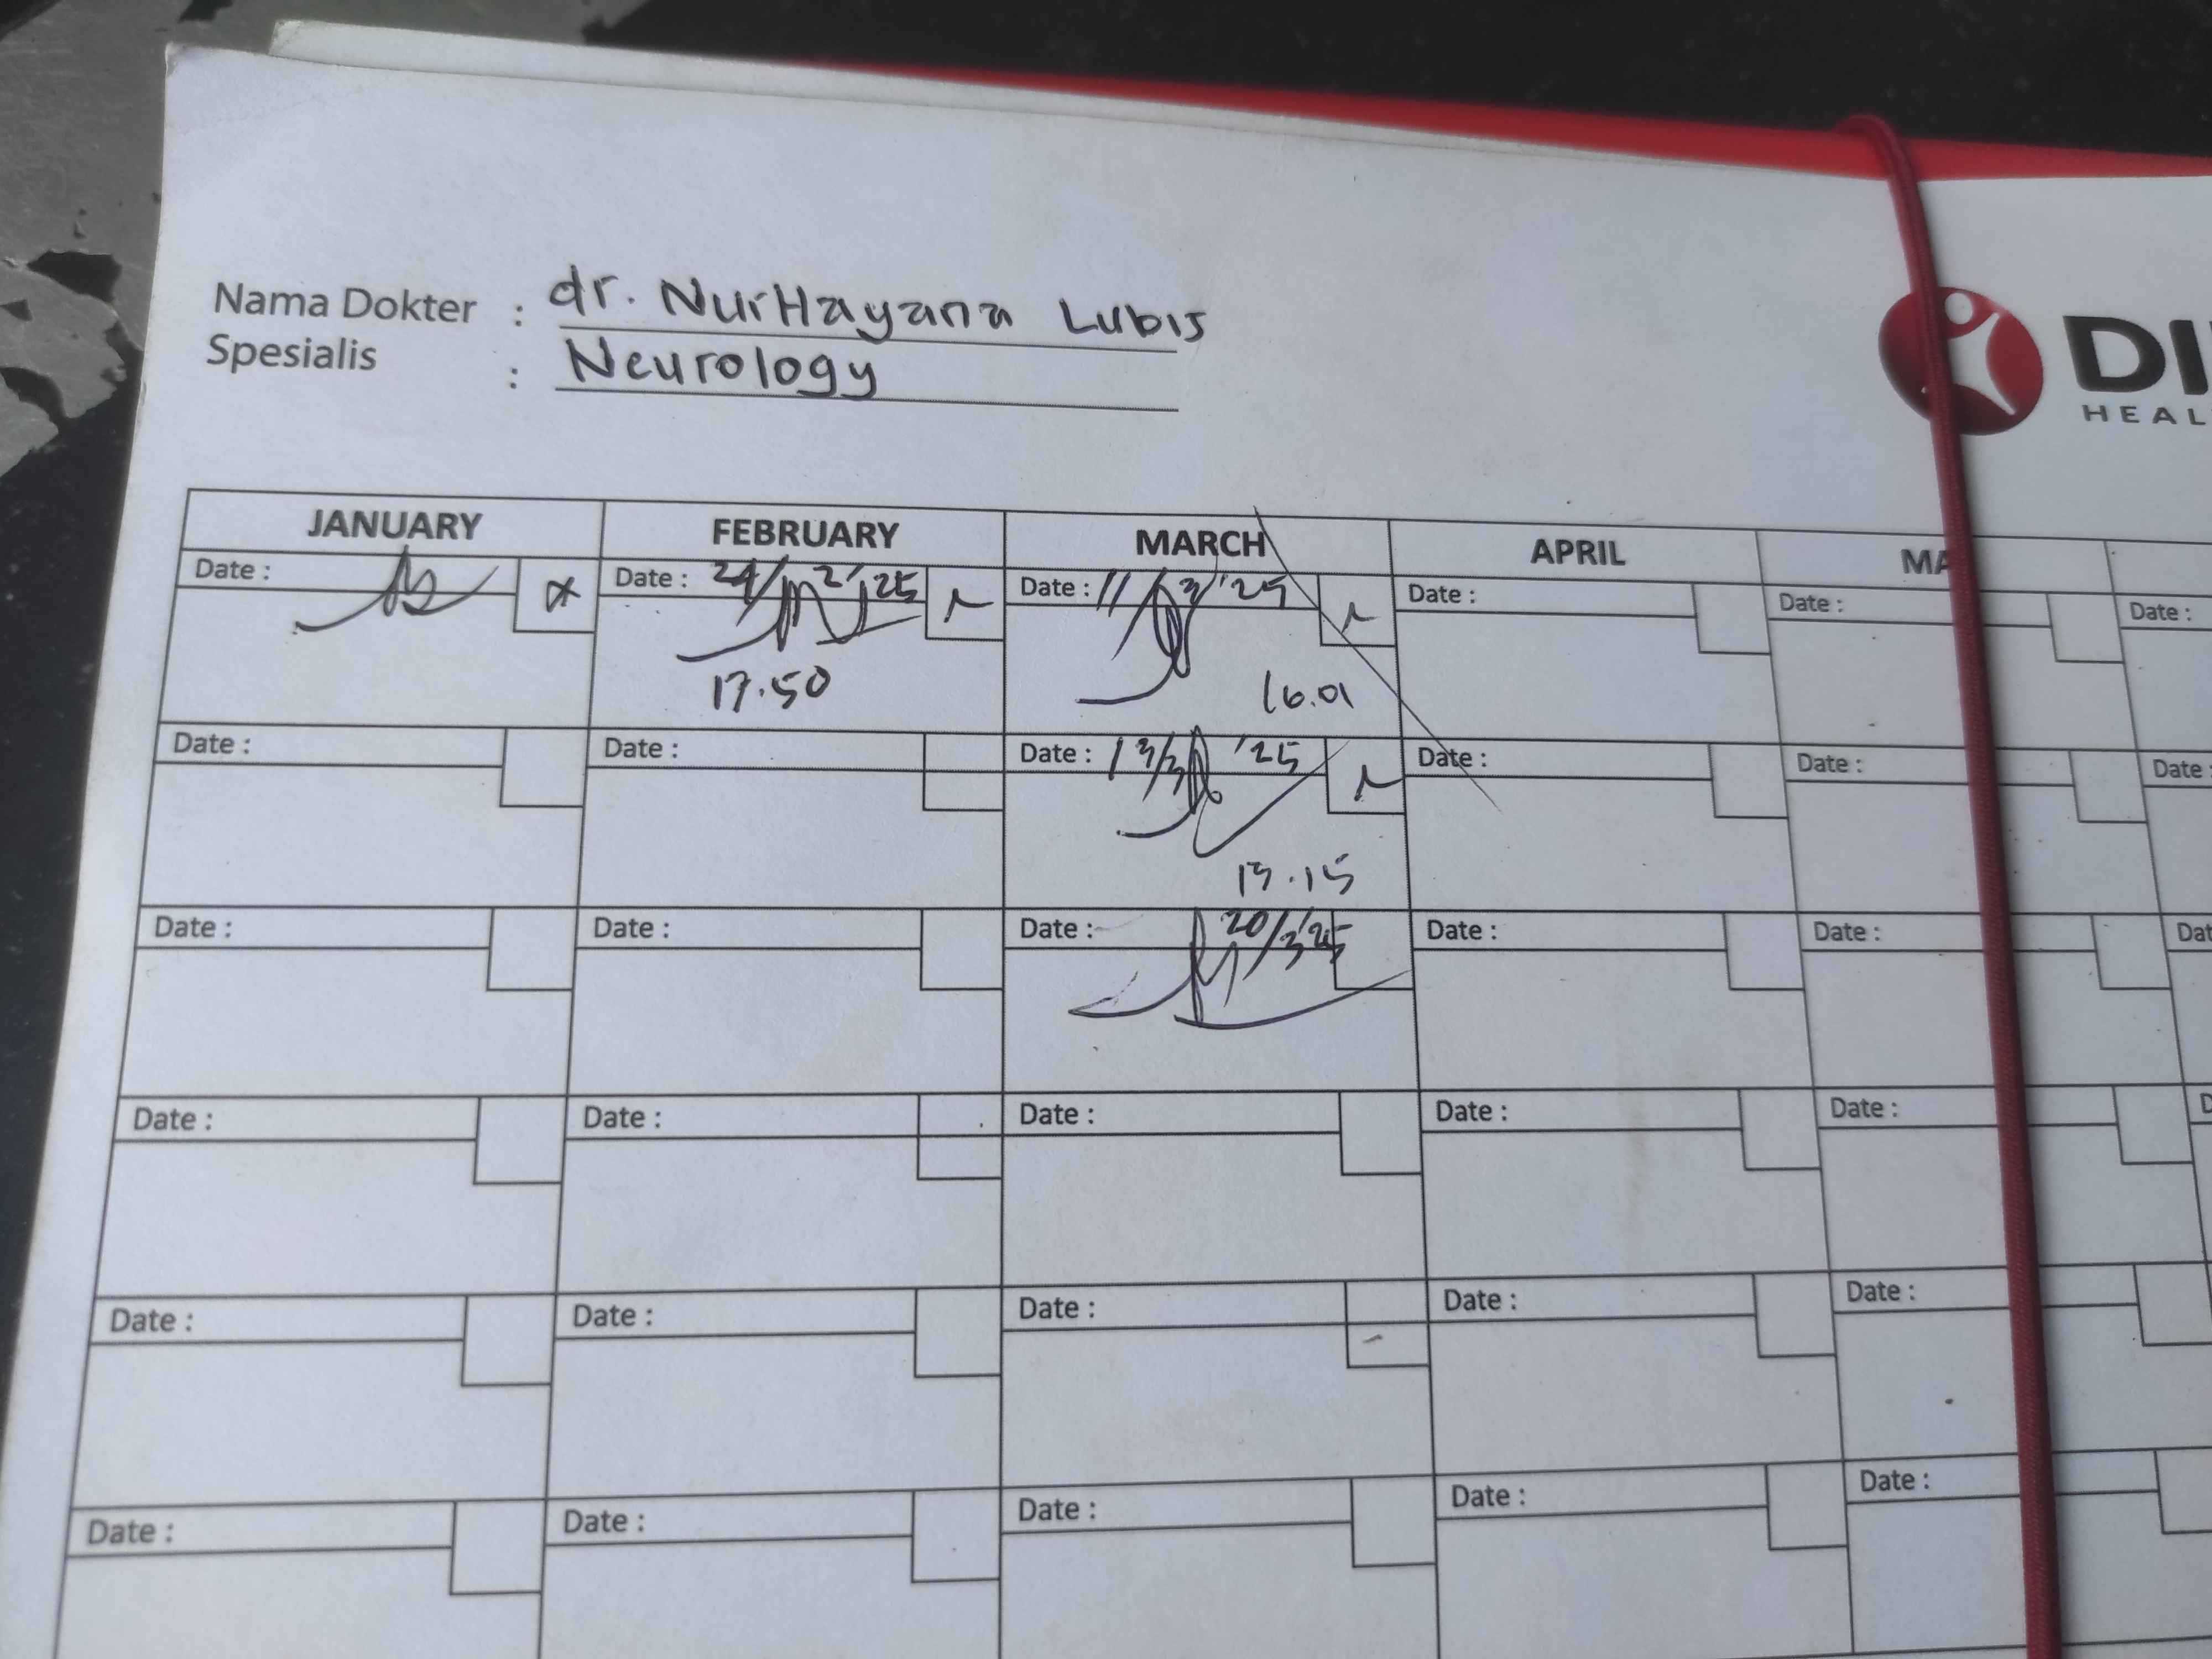 Nama Dokter : dr. NurHayana Lubis
Spesialis : Neurology
DI
HEAL
JANUARY FEBRUARY MARCH APRIL MA
Date : Date : 24/2'25 Date : 11/3'25 Date : Date : Date :
17.50 16.01
Date : Date : Date : 13/3 '25 Date : Date : Date :
13.15
Date : Date : Date : 20/3'25 Date : Date : Dat
Date : Date : Date : Date : Date : D
Date : Date : Date : Date : Date :
Date : Date : Date : Date : Date :